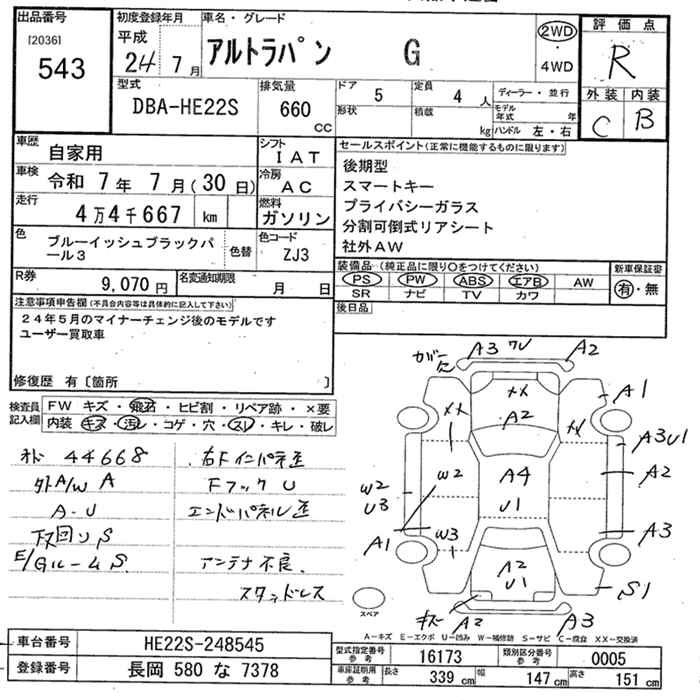 出品番号
[2036]
543
初度登録年月
平成
24年7月
車名・グレード
アルトラパン G
2WD
・
4WD
評価点
R
外装 内装
C B
型式
DBA-HE22S
排気量
660
CC
ドア
5
形状
定員
4人
積載
kg
ディーラー・並行
モデル年式 年
ハンドル 左・右
車歴
自家用
シフト
IAT
車検
令和 7年 7月(30日)
冷房
AC
走行
4万4千667 km
燃料
ガソリン
色
ブルーイッシュブラックパ
ール3
色替
色コード
ZJ3
R券
9,070円
名変通知期限
月 日
セールスポイント(正常に機能するものに限ります)
後期型
スマートキー
プライバシーガラス
分割可倒式リアシート
社外AW
装備品(純正品に限り○をつけてください)
PS PW ABS エアB AW
SR ナビ TV カワ
新車保証書
有・無
後日品
注意事項申告欄(不具合内容等は具体的に記入して下さい)
24年5月のマイナーチェンジ後のモデルです
ユーザー買取車
修復歴 有〔箇所 〕
検査員
記入欄
FW キズ・飛石・ヒビ割・リペア跡・×要
内装 キズ・汚レ・コゲ・穴・スレ・キレ・破レ
44668
外A/W A
A-U
下回りS
E/GルームS.
右Fインパネ歪
FフックU
エンドパネル歪
アンテナ不良
スタッドレス
ガラス
A3 ワレ
A2
XX
A2
XX
XX
A1
A3U1
A2
W2
A4
W2
U3
U1
A1
W3
A3
A2
U1
S1
キズ A2
A3
スペア
A-キズ E-エクボ U-凹み W-補修跡 S-サビ C-腐食 XX-交換済
車台番号
HE22S-248545
登録番号
長岡 580 な 7378
型式指定番号
参考
16173
類別区分番号
参考
0005
車庫証明用
参考
長さ 339 cm
幅 147 cm
高さ 151 cm